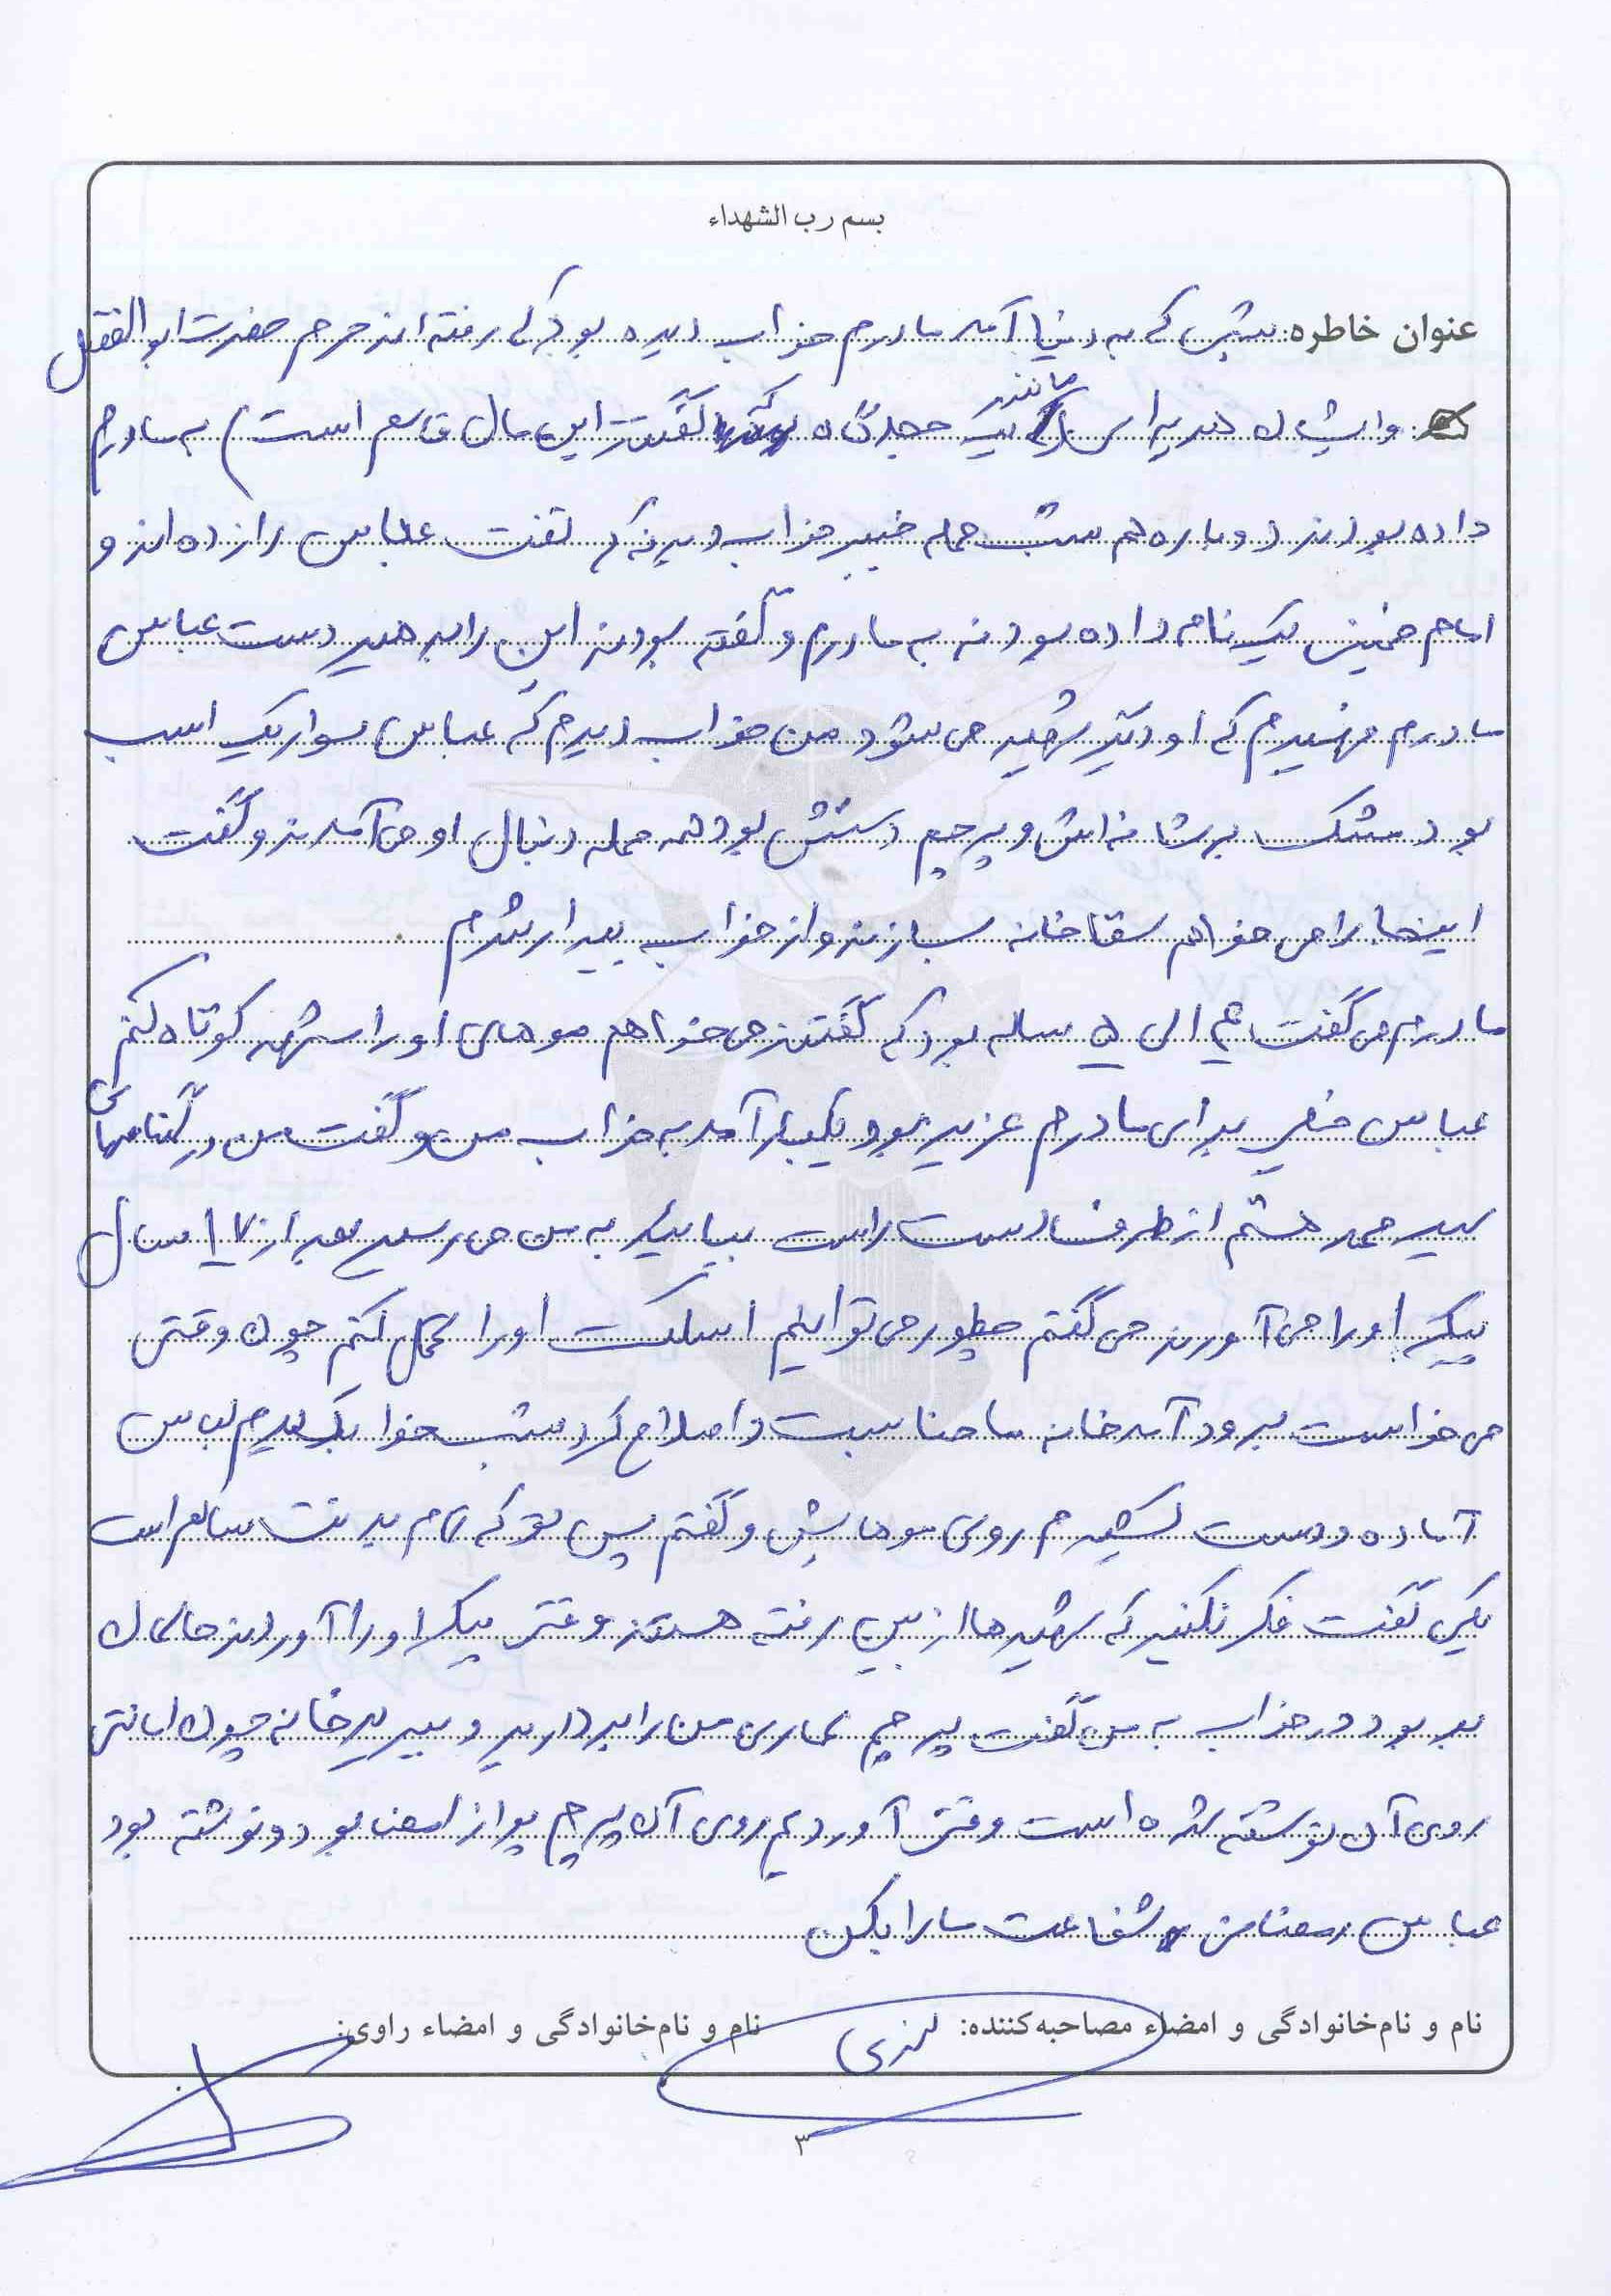 بسم رب الشهداء
عنوان خاطره: شبی که به دنیا آمد مادرم خواب دیده بود که رفته اند حرم حضرت ابوالفضل
وایشان هدیه ای مانند یک حجله گاه که گفتند این مال قاسم است) به مادرم
داده بودند دوباره هم شب حمله خیبر خواب دیدند که گفت عباس را زده اند و
امام خمینی یک نامه داده بودند به مادرم و گفته بودند این را بدهید دست عباس
مادرم فهمیدم که او دیگر شهید می شود من خواب دیدم که عباس سوار یک اسب
بود مشک بر شانه اش و پرچم دستش بود همه محله دنبال او می آمدند و گفت
اینجا را می خواهم سقاخانه بسازند و از خواب بیدار شدم
مادرم می گفت ۴ الی ۵ ساله بود که گفتند می خواهم موهای او را کوتاه کنم
عباس خیلی برای مادرم عزیز بود یکبار آمد به خواب من و گفت من در گلنامهای
سید محمد هستم از طرف دست راست بیایید به من می رسید بعد از ۱۷ سال
پیکر او را می آورند می گفتم چطور می توانیم اسکلت او را تحمل کنم چون وقتی
می خواست برود آمد خانه ما حنا بست و اصلاح کرد شب خواب دیدم عباس
آمده و دست کشیدم روی موهایش و گفتم پس تو که تمام بدنت سالم است
یکی گفت فکر نکنید که شهیدها از بین رفته هستند وقتی پیکر او را آوردند
بود در خواب به من گفت پرچم من را بردارید و ببرید خانه چون امانتی
روی آن نوشته شده است وقتی آوردیم روی آن پرچم پر از امضا بود و نوشته بود
عباس شفاعت ما را بکن
نام و نام‌خانوادگی و امضاء مصاحبه‌کننده: نام و نام‌خانوادگی و امضاء راوی:
۳